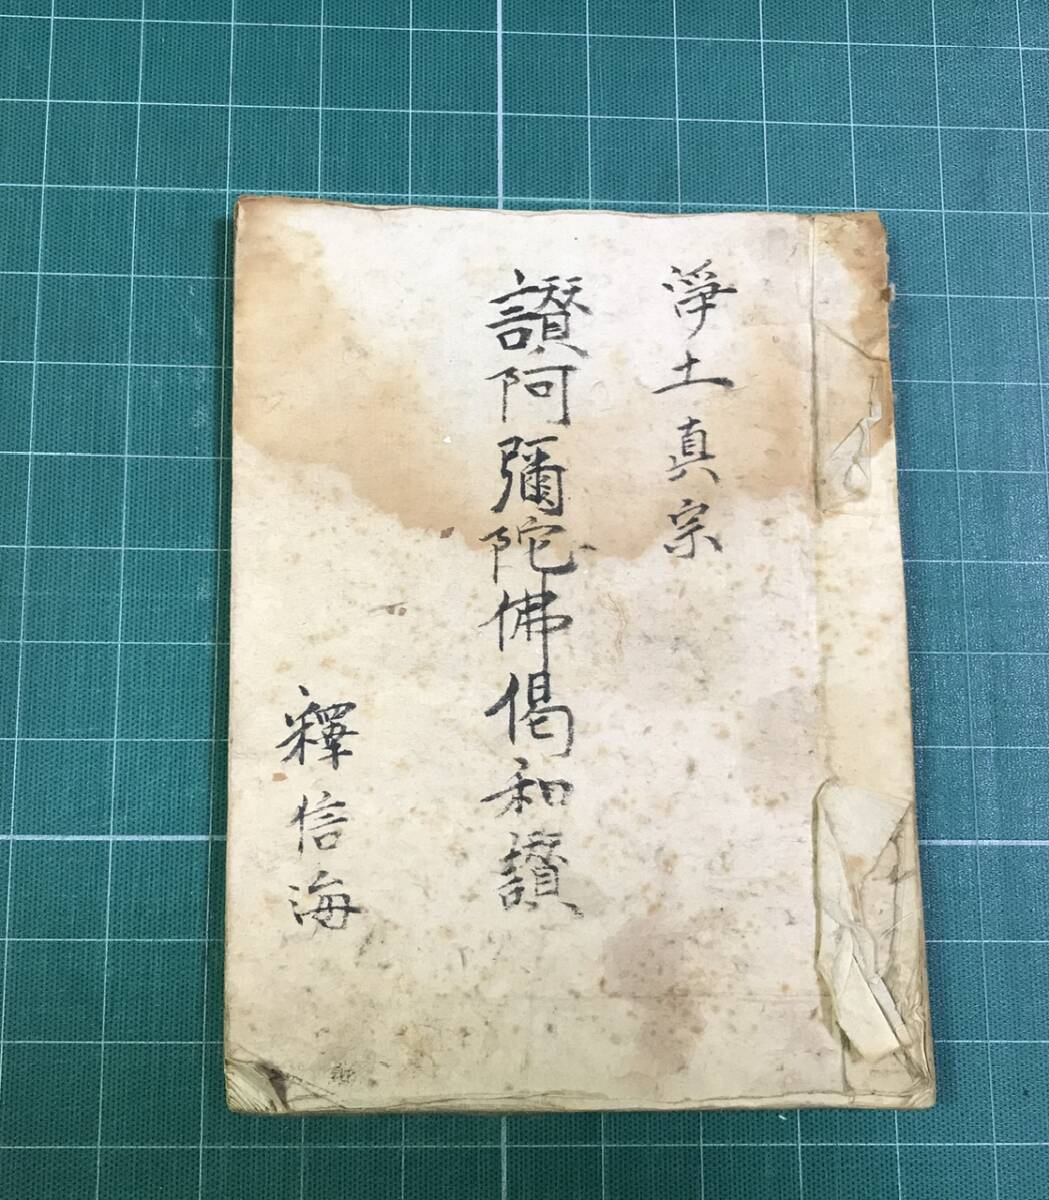 淨土真宗
讃阿彌陀佛偈和讃
釋信海